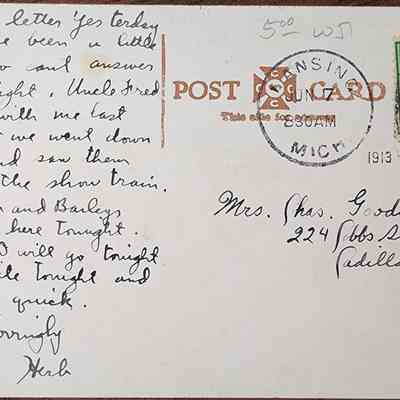 letter Yesterday
e been a little
o and answer
ight. Uncle Fred
with me last
we went down
nd saw them
the show train.
and Barleys
here tonight.
I will go tonight
tonight and
quick.
ovringly
Herb
5.00
POST CARD
This side for
ENSING
JUN 7
2 30 AM
MICH
1913
Mrs. Chas. Good
224 Cobbs S
Cadilla